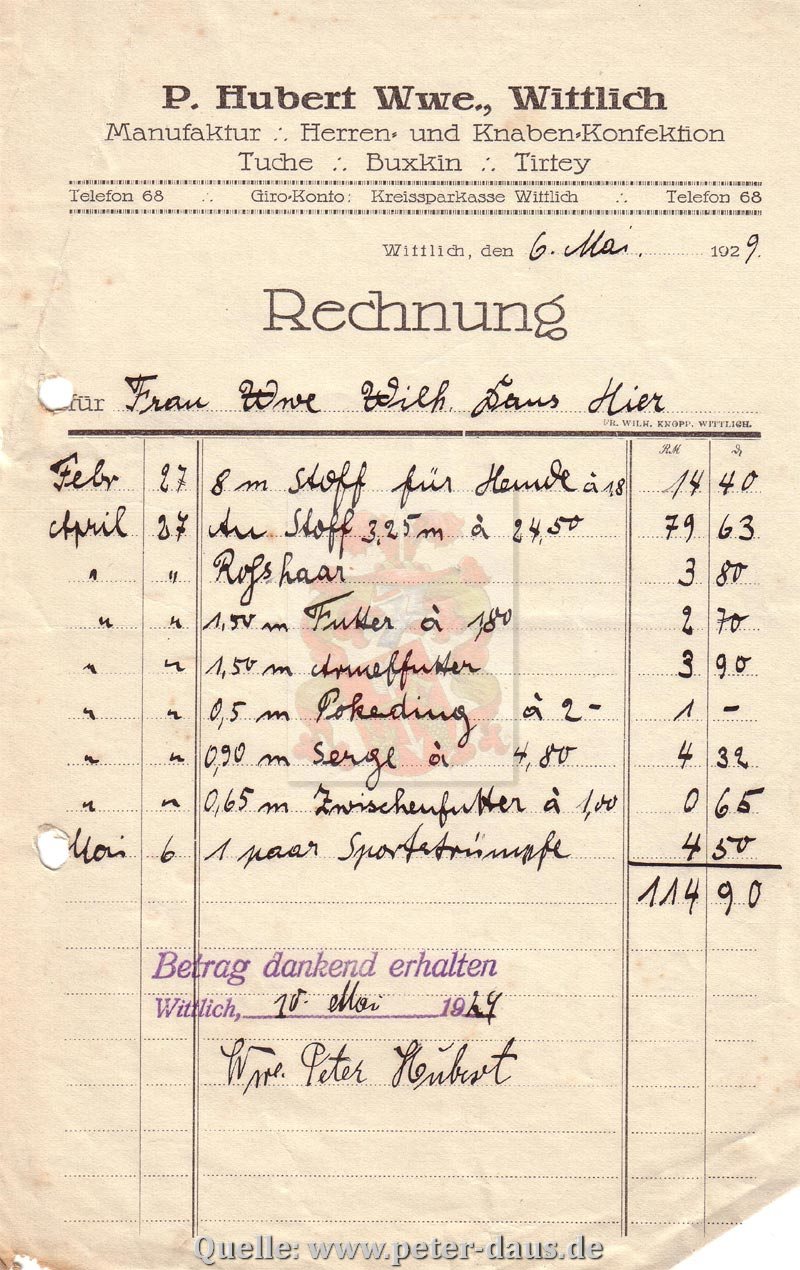 P. Hubert Wwe., Wittlich
Manufaktur ∴ Herren- und Knaben-Konfektion
Tuche ∴ Buxkin ∴ Tirtey
Telefon 68 ∴ Giro-Konto: Kreissparkasse Wittlich ∴ Telefon 68
Wittlich, den 6. Mai. 1929.
Rechnung
für Frau Wwe Wilh. Daus Hier
FR. WILH. KNOPP, WITTLICH.
RM
Febr 27 8 m Stoff für Hemde à 18 14 40
April 27 An Stoff 3,25 m à 24,50 79 63
" " Rosshaar 3 80
" " 1,50 m Futter à 1,80 2 70
" " 1,50 m Armelfutter 3 90
" " 0,5 m à 2- 1 -
" " 0,90 m Serge à 4,80 4 32
" " 0,65 m Zwischenfutter à 1,00 0 65
Mai 6 1 paar Sportstrümpfe 4 50
114 90
Betrag dankend erhalten
Wittlich, 10. Mai 1929
Wwe. Peter Hubert
Quelle: www.peter-daus.de